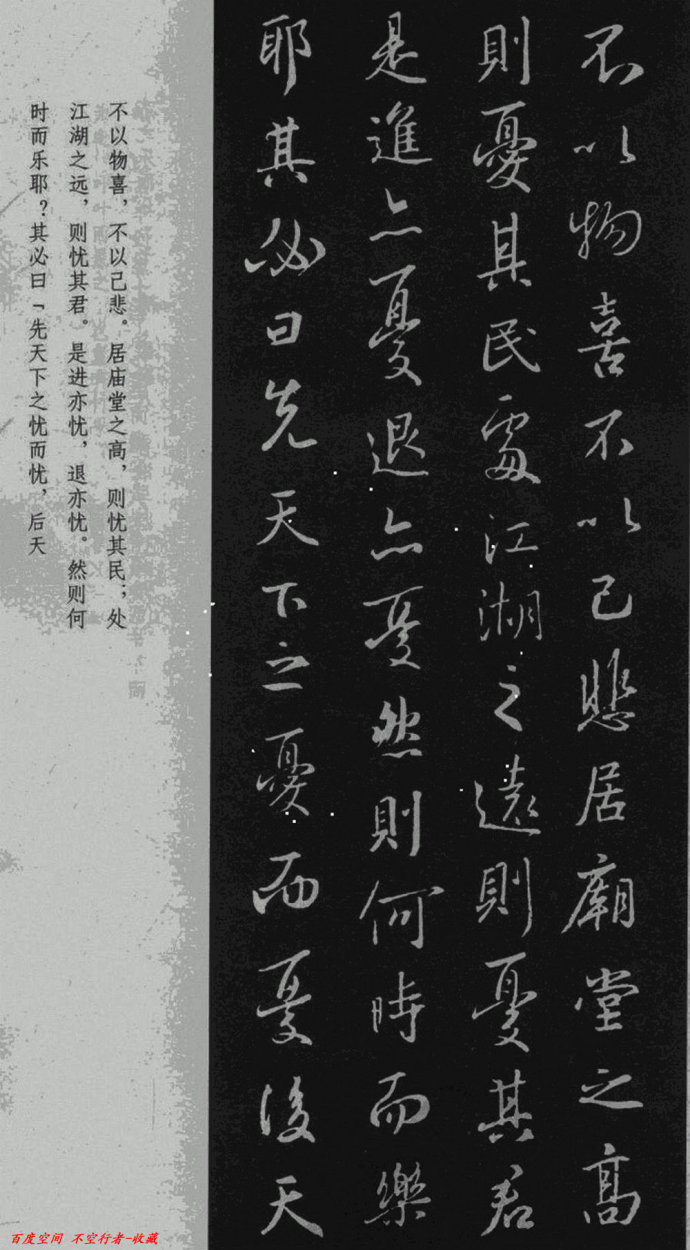 不以物喜不以己悲居廟堂之高
則憂其民處江湖之遠則憂其君
是進亦憂退亦憂然則何時而樂
耶其必曰先天下之憂而憂後天
不以物喜，不以己悲。居庙堂之高，则忧其民；处
江湖之远，则忧其君。是进亦忧，退亦忧。然则何
时而乐耶？其必曰「先天下之忧而忧，后天
百度空间 不空行者-收藏